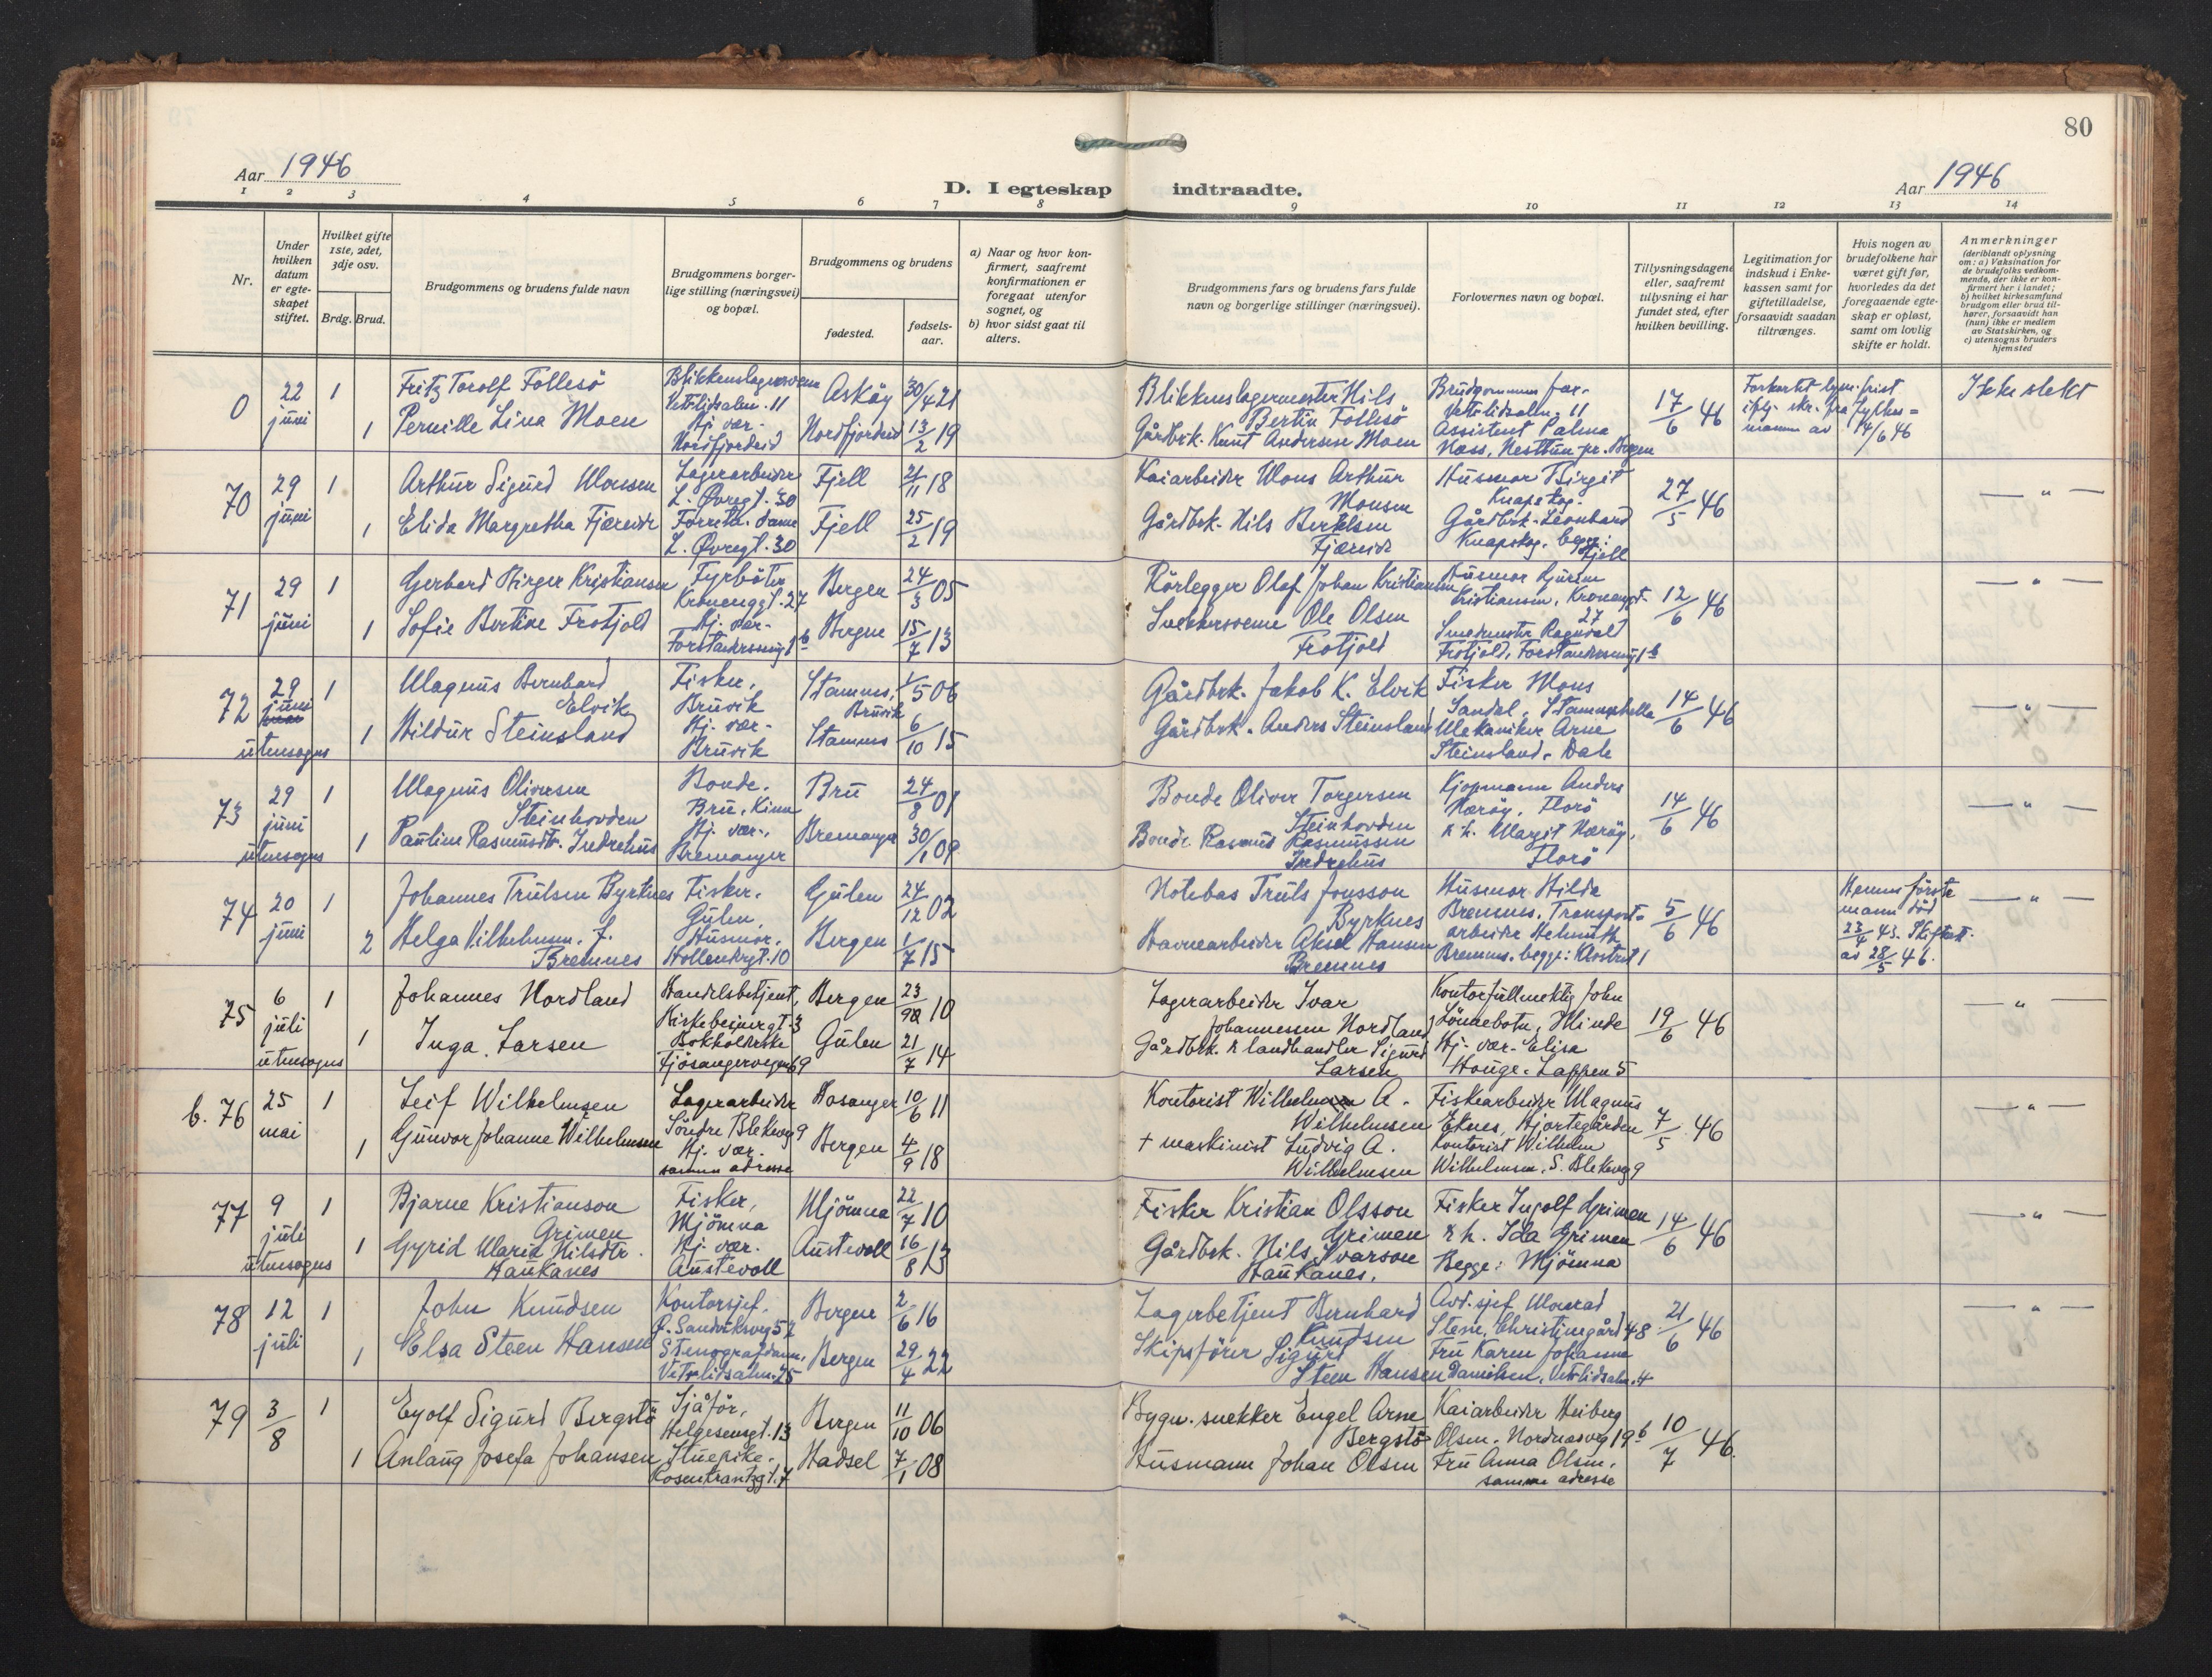 80
Aar 1946
D. I egteskap indtraadte.
Aar 1946
1 2 3 4 5 6 7 8 9 10 11 12 13 14
Nr.
Under hvilken datum er egteskapet stiftet.
Hvilket gifte 1ste, 2det, 3dje osv.
Brdg. Brud.
Brudgommens og brudens fulde navn
Brudgommens borgerlige stilling (næringsvei) og bopæl.
Brudgommens og brudens
fødested.
fødselsaar.
a) Naar og hvor konfirmert, saafremt konfirmationen er foregaat utenfor sognet, og
b) hvor sidst gaat til alters.
Brudgommens fars og brudens fars fulde navn og borgerlige stillinger (næringsvei).
Forlovernes navn og bopæl.
Tillysningsdagene eller, saafremt tillysning ei har fundet sted, efter hvilken bevilling.
Legitimation for indskud i Enkekassen samt for giftetilladelse, forsaavidt saadan tiltrænges.
Hvis nogen av brudefolkene har været gift før, hvorledes da det foregaaende egteskap er opløst, samt om lovlig skifte er holdt.
Anmerkninger (deriblandt oplysning om: a) Vaksination for de brudefolks vedkommende, der ikke er konfirmert her i landet; b) hvilket kirkesamfund brudgom eller brud tilhører, forsaavidt han (hun) ikke er medlem av Statskirken, og c) utensogns bruders hjemsted
0 22 juni 1 Fritz Torolf Follesö Blikkenslagersvenn Vetrlidsalm. 11 Asköy 30/4 21 Blikkenslagermester Nils Bertin Follesö Brudgommens far. Vetrlidsalm. 11 17/6 46 Forkortet lysn. frist ifly. skr. fra fylkesmann av 14/6 46 Ikke slekt
1 Pernille Lina Moen Hj. vær. Nordfjordeid Nordfjordeid 13/2 19 Gårdbrk. Knut Andersen Moen Assistent Palma Næss, Nesttun pr. Bergen
70 29 juni 1 Arthur Sigurd Monsen Lagerarbeider L. Øvregt. 30 Fjell 2/11 18 Kaiarbeider Mons Arthur Monsen Husmor Birgit Knapskog. 27/5 46 — " —
1 Elida Margretha Fjæreide Forretn. dame L. Øvregt. 30 Fjell 25/2 19 Gårdbrk. Nils Bertelsen Fjæreide Gårdbrk. Leonhard Knapskog. begge: Fjell
71 29 juni 1 Gerhard Birger Kristiansen Fyrböter Kroneng gt. 27 Bergen 24/3 05 Rörlegger Olaf Johan Kristiansen Husmor Kristiansen, Kronenggt. 27 12/6 46 — " —
1 Sofie Bertine Frotjold Hj. vær. Forstandersmug 1b Bergen 15/7 13 Snekkersvenn Ole Olsen Frotjold Smedmester Ragnvald Frotjold, Forstandersmug 1b
72 29 juni utensogns 1 Magnus Bernhard Elvik Fisker, Bruvik Stamnes, Bruvik 1/5 06 Gårdbrk. Jakob K. Elvik Fisker Mons Sandal, Stamneshella 14/6 46 — " —
1 Hildur Steinsland Hj. vær. Bruvik Stamnes 6/10 15 Gårdbrk. Anders Steinsland Mekaniker Arne Steinsland. Dale
73 29 juni utensogns 1 Magnus Oliversen Steinhovden Bonde. Bru, Kinn Bru 24/8 01 Bonde Oliver Torgersen Steinhovden Kjøpmann Anders Nærøy, Florö 14/6 46 — " —
1 Pauline Rasmusdtr. Indrehus Hj. vær., Bremanger Bremanger 30/1 09 Bonde Rasmus Rasmussen Indrehus & h. Margit Nærøy, Florö
74 20 juni 1 Johannes Trulsen Byrknes Fisker. Gulen, Gulen 24/12 02 Notebas Truls Jonsson Byrknes Husmor Hilda Bremnes, Transport- 5/6 46 Hennes første mann död 23/4 43. Skiftet. av 28/5 46. — " —
2 Helga Vilhelmsen, f. Bremnes Husmor. Hollendergt. 10 Bergen 1/7 15 Havnearbeider Aksel Hansen Bremnes arbeider Helmuth Bremnes. begge: Klostret 1
75 6 juli utensogns 1 Johannes Nordland Handelsbetjent, Bispebeinergt. 3 Bergen 23/ 10 Lagerarbeider Ivar Johannessen Nordland Kontorfullmektig John Lönnebotn, Minde 19/6 46 — " —
1 Inga Larsen Bokholderske Fjösangerveien 69 Gulen 21/7 14 Gårdbrk. & landhandler Sigurd Larsen Hj. vær. Elisa Houge. Lappen 5
b. 76 25 mai 1 Leif Wilhelmsen Lagerarbeider Söndre Blekevg 9 Hosanger 10/6 11 Kontorist Wilhelm A. Wilhelmsen Fiskearbeider Magnus Eknes, Hjortegården 7/5 46 — " —
1 Gunvor Johanne Wilhelmsen Hj. vær. samme adresse Bergen 4/9 18 + maskinist Ludvig A. Wilhelmsen Kontorist Wilhelm Wilhelmsen, S. Blekevg 9
77 9 juli utensogns 1 Bjarne Kristianson Grimen Fisker, Mjömna Mjömna 22/7 10 Fisker Kristian Olsson Grimen Fisker Ingolf Grimen 14/6 46 — " —
1 Gyrid Marie Nilsdtr. Haukanes Hj. vær. Austevoll Austevoll 16/8 13 Gårdbrk. Nils Ivarson Haukanes. & h. Ida Grimen Begge: Mjömna
78 12 juli 1 John Knudsen Kontorsjef. Ø. Sandviksveg 52 Bergen 2/6 16 Lagerbetjent Bernhard Knudsen Avd. sjef Monrad Steen, Christinegård 48. 21/6 46 — " —
1 Elsa Steen Hansen Stenografdame, Vetrlidsalm. 25 Bergen 29/4 22 Skipsförer Sigurd Steen Hansen Fru Karen Johanne Danielsen, Vetrlidsalm. 4
79 3/8 1 Eyolf Sigurd Bergstö Sjåför, Helgesensgt. 13 Bergen 11/10 06 Bygn. snekker Engel Arne Bergstö Kaiarbeider Heiberg Olsen. Nordnesveg 19b 10/7 46.
1 Anlaug Josefa Johansen Stuepike. Rosenkrantzgt. 7 Hadsel 7/1 08 Husmann Johan Olsen Fru Anna Olsen. samme adresse